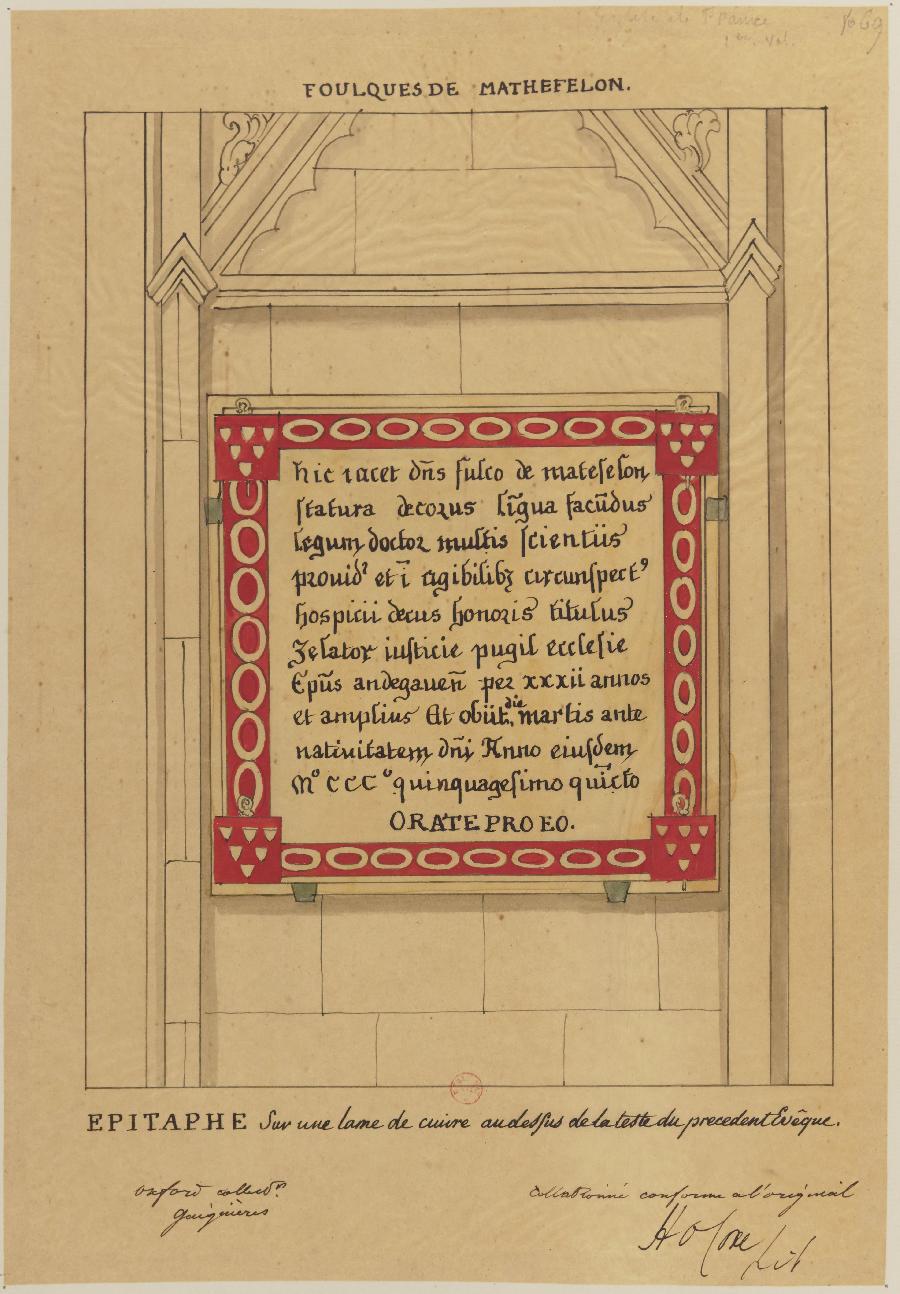 1669
FOULQUES DE MATHEFELON.
hic iacet dn̄s fulco de matefelon
statura decorus līgua facūdus
legum doctor multis scientiis
prouid᾽ et ī agibilibꝫ circunspectꝰ
hospicii decus honoris titulus
Zelator iusticie pugil ecclesie
Ep̄us andegaueñ per xxxii annos
et amplius Et obiit, die martis ante
nativitatem dn̄i Anno eiusdem
Mº CCCº quinquagesimo quīcto
ORATE PRO EO.
EPITAPHE Sur une lame de cuivre au dessus de la teste du precedent Evêque.
oxford collectⁿ
Gaignières
collationné conforme a l'original